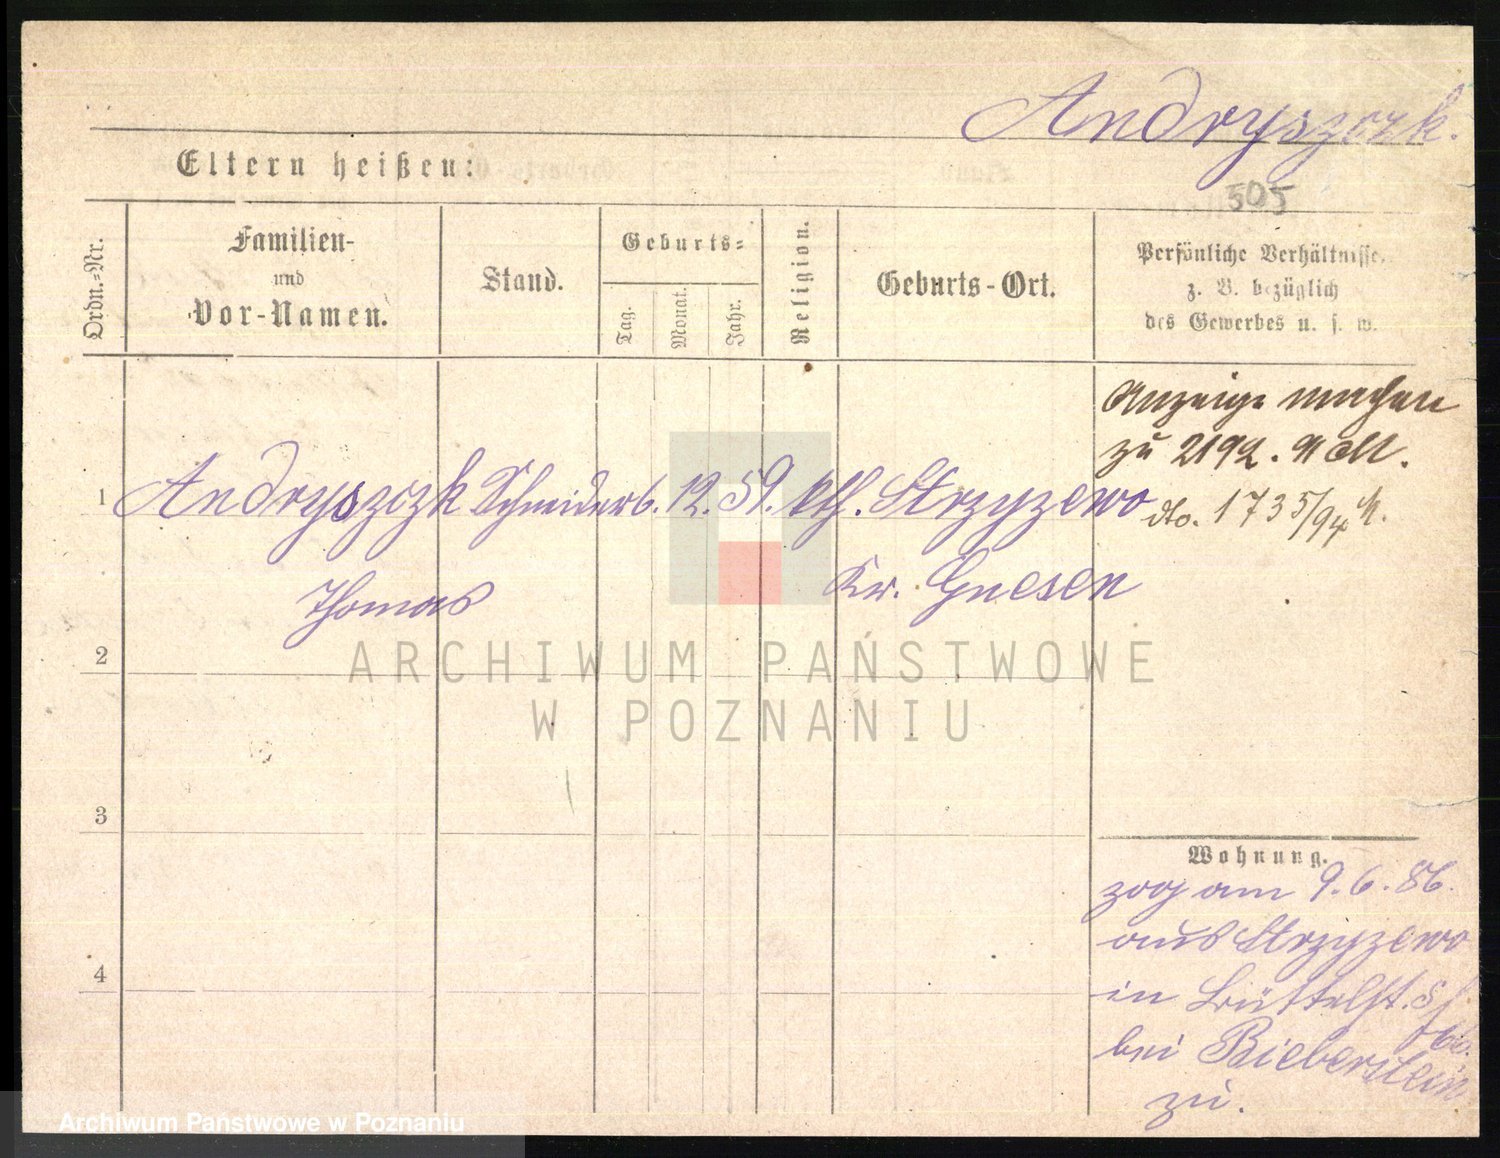 Andryszczk.
Eltern heißen:
505
Ordn.-Nr.
Familien-
und
Vor-Namen.
Stand.
Geburts-
Tag.
Monat.
Jahr.
Religion.
Geburts-Ort.
Persönliche Verhältnisse,
z. B. bezüglich
des Gewerbes u. s. w.
Anzeige machen
zu 2192.
1 Andryszczk Schneider 6. 12. 59. kth. Strzyzewo
dto. 1735/94
Thomas
Kr. Gnesen
2
ARCHIWUM PAŃSTWOWE
W POZNANIU
3
Wohnung.
zog am 9.6.86.
aus Strzyzewo
4
in Büttelst. 5
bei Bieberstein
zu.
Archiwum Państwowe w Poznaniu